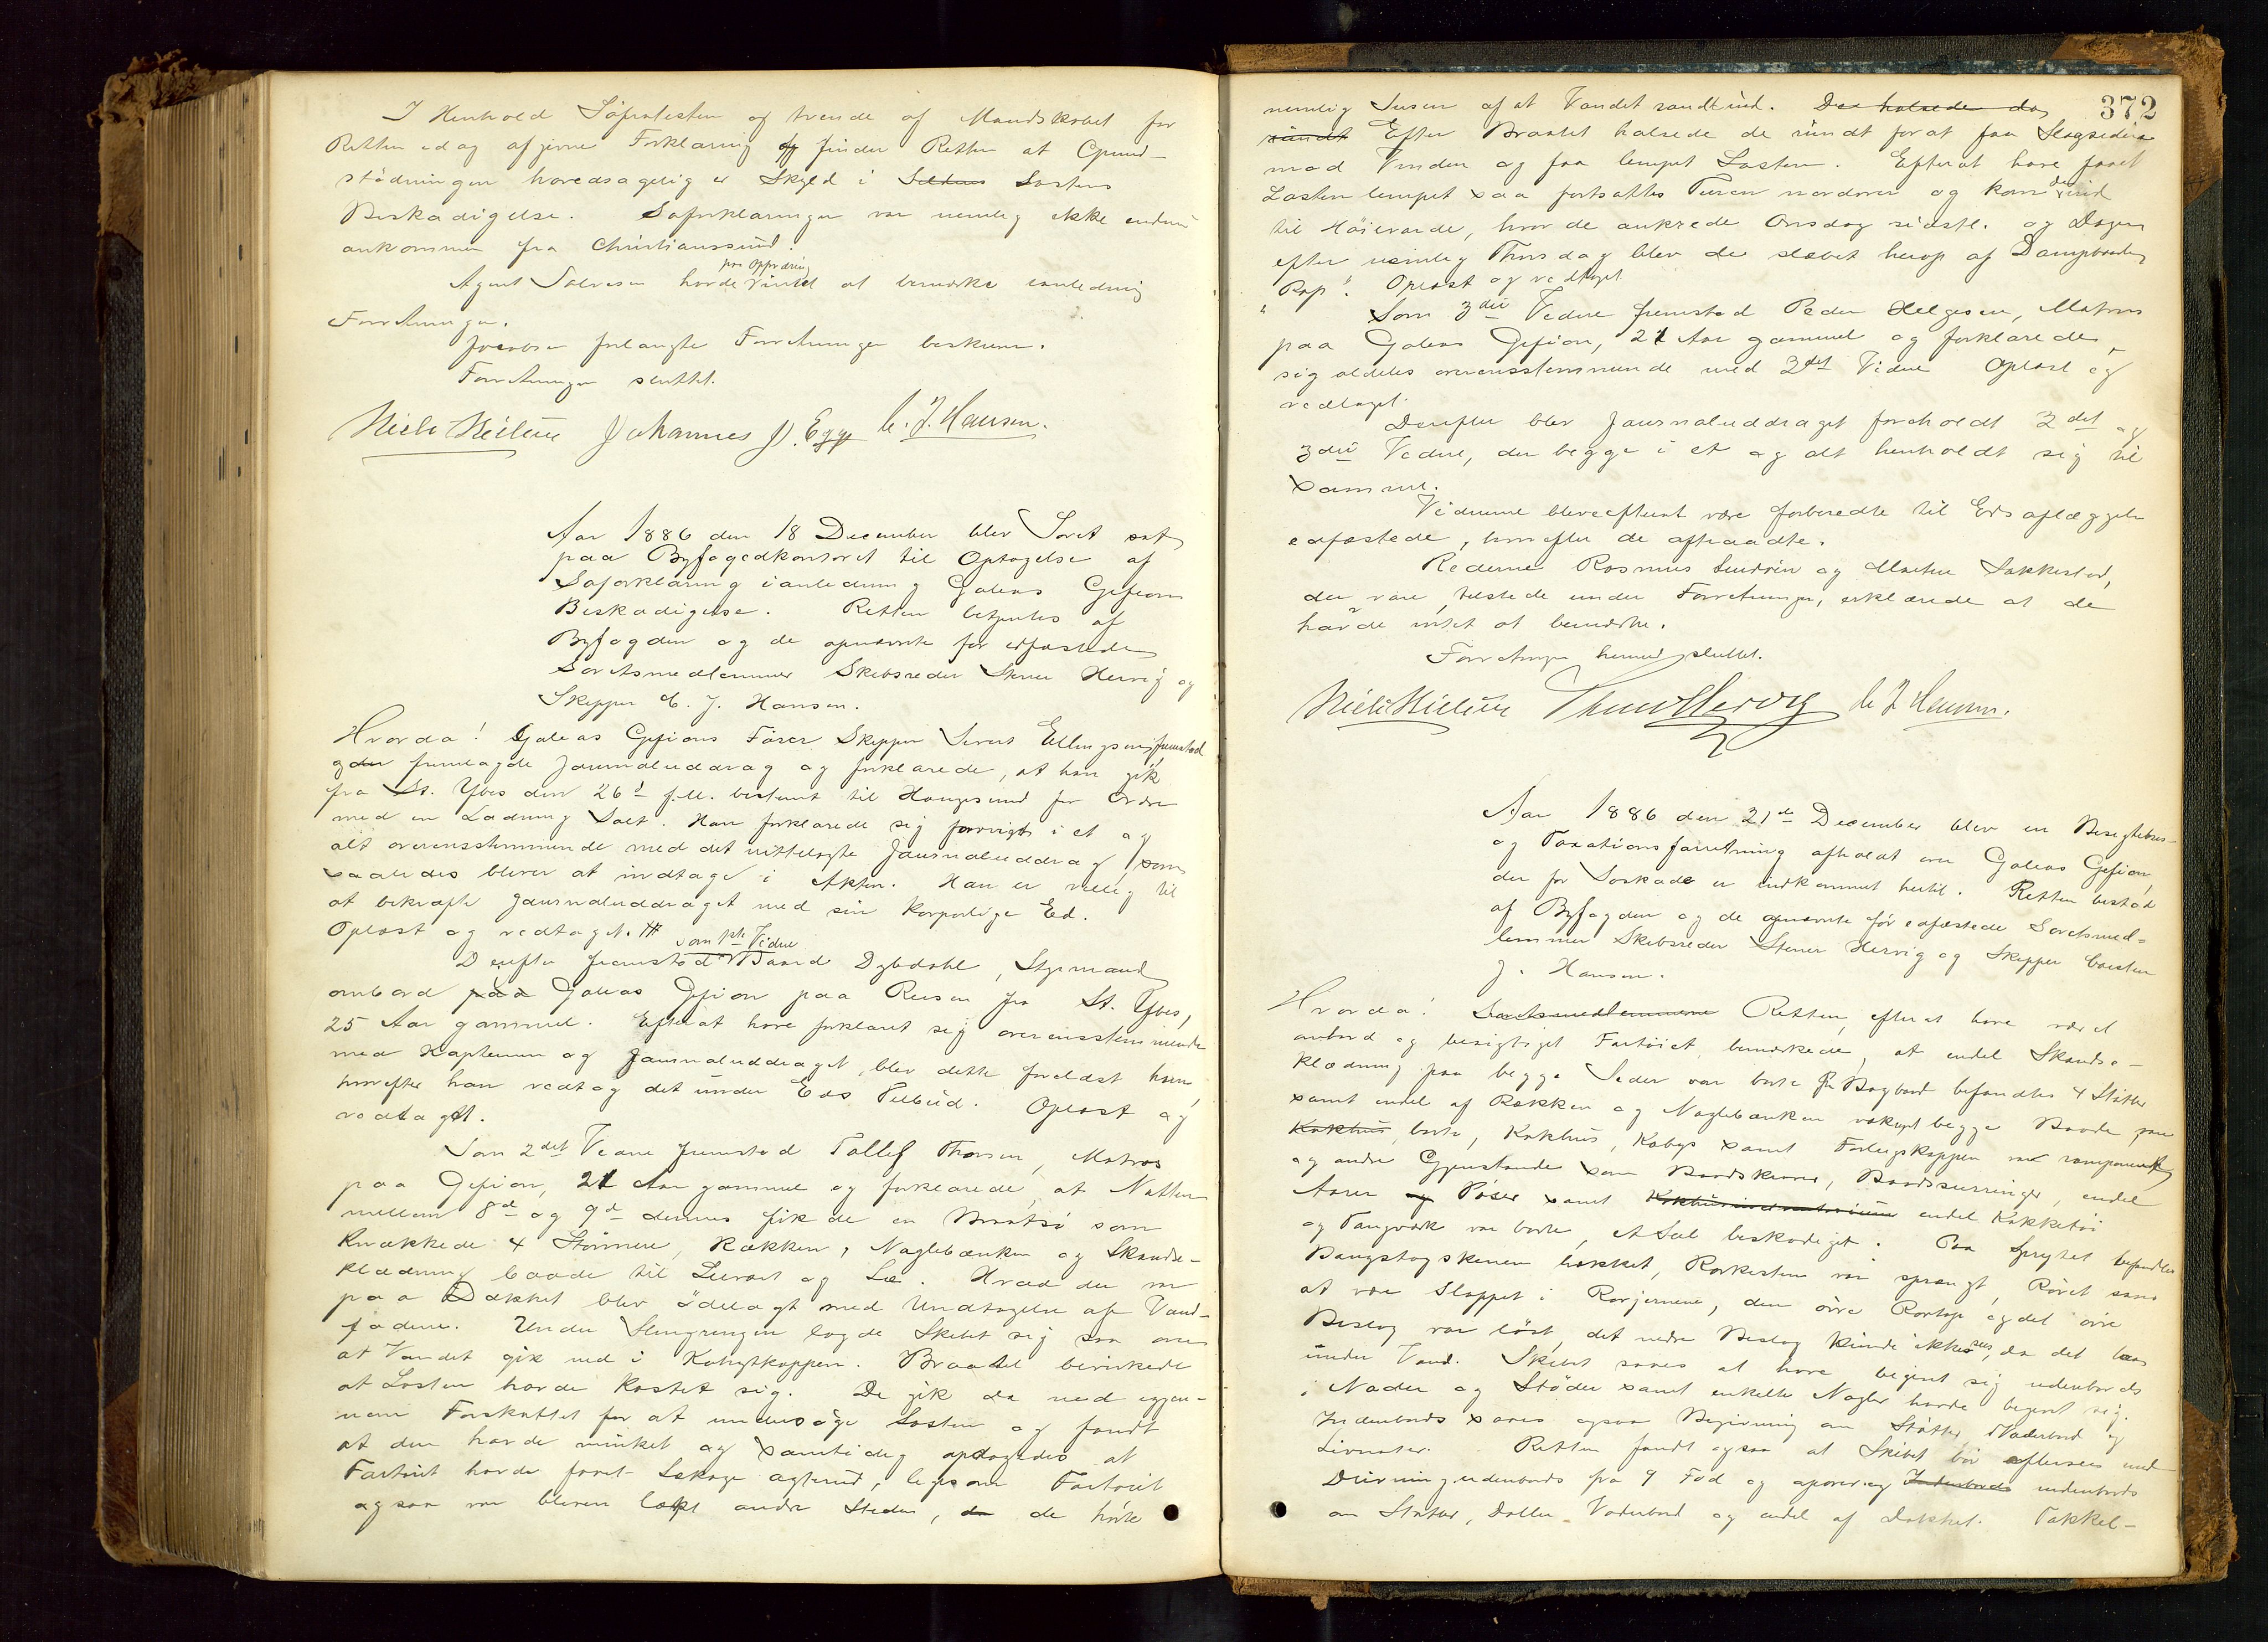 I Henhold Söprotesten og trende af Mandskabet for
Retten idag afgivne Forklaring finder Retten at Grund-
stödningen hovedsagelig er Skyld i Lastens
Beskadigelse. Söforklaringen var nemlig ikke endnu
ankommen fra Christianssund.
paa Opfordring
Agent Salvesen havde Intet at bemærke ianledning
Forretningen.
Jacobsen forlangte Forretningen beskreven.
Forretningen sluttet.
Niels Nielsen Johannes J. Egge C. J. Hansen.
Aar 1886 den 18 December blev Søret sat
paa Byfogedkontoret til Optagelse af
Søforklaring ianledning Galeas Gefions
Beskadigelse. Retten betjentes af
Byfogden og de opnævnte før edfæstede
Søretsmedlemmer Skibsreder Stener Hervig og
Skipper C. J. Hansen.
Hvorda! Galeas Gefions Fører Skipper Sivert Ellingsen, fremstod
og fremlagde Journaluddrag og forklarede, at han gik
fra St. Ybes den 26d f.M. bestemt til Haugesund for Ordre
med en Ladning Salt. Han forklarede sig forøvrigt i et og
alt overensstemmende med det nittelagte Journaluddrag, som
saaledes bliver at indtage i Akten. Han er villig til
at bekræfte Journaluddraget med sin korporlige Ed.
Oplæst og vedtaget.
som 1ste Vidne
Derefter fremstod Baard Dybdahl, Styrmand
ombord paa Galeas Gefion paa Reisen fra St. Ybes,
25 Aar gammel. Efterat have forklaret sig overensstemmende
med Kapteinen og Journaluddraget, blev dette forelæst ham,
hvorefter han vedtog det under Eds Tilbud. Oplæst og
vedtaget.
Som 2det Vidne fremstod Tollef Thorsen, Matros
paa Gefion, 21 Aar gammel og forklarede, at Natten
mellem 8d og 9d dennes fik de en Braatsø som
knækkede 4 Støtter, Rækken, Naglebænken og Skandse-
klædning baade til Luvart og Læ. Hvad der var
paa Dækket blev ödelagt med Undtagelse af Vand-
fadene. Under Slengringen lagde Skibet sig saa over
at Vandet gik ned i Kahytkappen. Braattet bevirkede
at Lasten havde kastet sig. De gik da ned igjen-
nem Forskuttet for at undersöge Lasten og fandt
at den havde minket og samtidig opdagedes at
Fartöiet havde faaet Lækage agterud, ligesom Fartöiet
ogsaa var bleven lækt andre Steder, de hörte
372
nemlig Susen af at Vandet randt ind. Der halsede da
rundt Efter Braatet halsede de rundt for at faa Slagsiden
mod Vinden og faa lempet Lasten. Efterat have faaet
Lasten lempet saa fortsattes Turen nordover og kom de ind
til Høievarde, hvor de ankrede Onsdag sidstl. og Dagen
efter nemlig Thorsdag blev de slæbet herop af Dampbaaden
"Rap". Oplæst og vedtaget.
Som 3die Vidne fremstod Peder Helgesen, Matros
paa Galeas Gefion, 21 Aar gammel og forklarede
sig aldeles overensstemmende med 2det Vidne Oplæst og
vedtaget.
Derefter blev Journaluddraget foreholdt 2det og
3die Vidne, der begge i et og alt henholdt sig til
samme.
Vidnerne bleve efterat være forberedte til Eds aflæggelse
edfæstede, hvorefter de aftraadte.
Rederne Rasmus Lindøen og Marten Sakkestad,
der vare tilstede under Forretningen, erklærede at de
havde intet at bemærke.
Forretningen hermed sluttet.
Niels Nielsen Stener Hervig C J Hansen.
Aar 1886 den 21de December blev en Besigtelses-
og Taxationsforretning afholdt over Galeas Gefion,
der for Søskade er indkommet hertil. Retten bestod
af Byfogden og de opnævnte før edfæstede Søretsmed-
lemmer Skibsreder Stener Hervig og Skipper Carsten
J. Hansen.
Hvorda! Søretsmedlemmerne Retten, efterat have været
ombord og besigtiget Fartøiet, bemærkede, at endel Skandse-
klædning paa begge Sider var borte. Paa Bagbord befandtes 4 Støtter
samt endel af Rækken og Naglebænken væk, begge Baade
Kokhus borte, Kokhus, Kabys samt Forlugskappen var ramponeret
og andre Gjenstande som Baadskraver, Baadssurringer, endel
Aarer Pøser samt endel Kokketøi
og Tougværk var borte, et Seil beskadiget. Paa Spryhet befandtes
Baugstagskenen hækket, Rorkisten var sprængt, Roret saaes
at være slappet i Rorjernene, den övre Rortap og det övre
Beslag var löst, det nedre Beslag kunde ikke sees, da det laas
under Vand. Skibet saaes at have begivet sig udenbords
i Nader og Stöder samt enkelte Nagler havde begivet sig.
Indenbords saaes ogsaa Begivning om Støtter, Vaderbord og
Livnater. Retten fandt ogsaa at Skibet bör eftersees med
Drivning udenbords fra 9 Fod og opover og Indenbords udenbords
om Støtter, Daller, Vaderbord og endel af Dækket. Takkel-